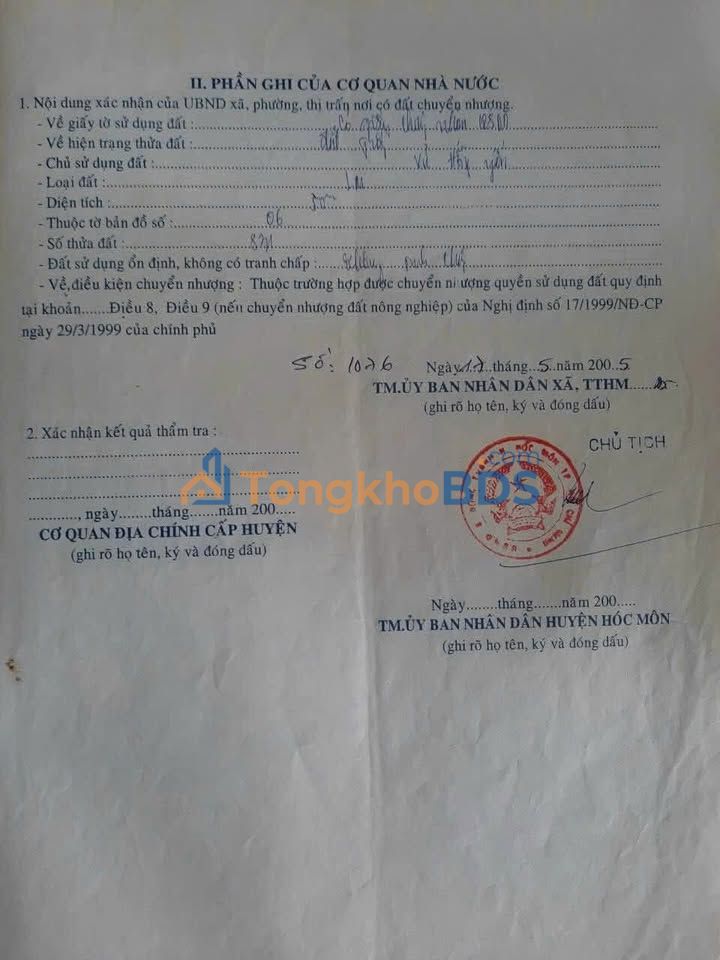 II. PHẦN GHI CỦA CƠ QUAN NHÀ NƯỚC
1. Nội dung xác nhận của UBND xã, phường, thị trấn nơi có đất chuyển nhượng.
- Về giấy tờ sử dụng đất :
- Về hiện trạng thửa đất :
- Chủ sử dụng đất :
- Loại đất :
- Diện tích :
- Thuộc tờ bản đồ số : 06
- Số thửa đất :
- Đất sử dụng ổn định, không có tranh chấp :
- Về điều kiện chuyển nhượng : Thuộc trường hợp được chuyển nhượng quyền sử dụng đất quy định
tại khoản.......Điều 8, Điều 9 (nếu chuyển nhượng đất nông nghiệp) của Nghị định số 17/1999/NĐ-CP
ngày 29/3/1999 của chính phủ
Số: 1076
Ngày 17 tháng 5 năm 2005
TM.ỦY BAN NHÂN DÂN XÃ, TTHM
(ghi rõ họ tên, ký và đóng dấu)
CHỦ TỊCH
2. Xác nhận kết quả thẩm tra :
............, ngày.......tháng........năm 200.....
CƠ QUAN ĐỊA CHÍNH CẤP HUYỆN
(ghi rõ họ tên, ký và đóng dấu)
TongkhoBDS
.com
Ngày........tháng.......năm 200.....
TM.ỦY BAN NHÂN DÂN HUYỆN HÓC MÔN
(ghi rõ họ tên, ký và đóng dấu)